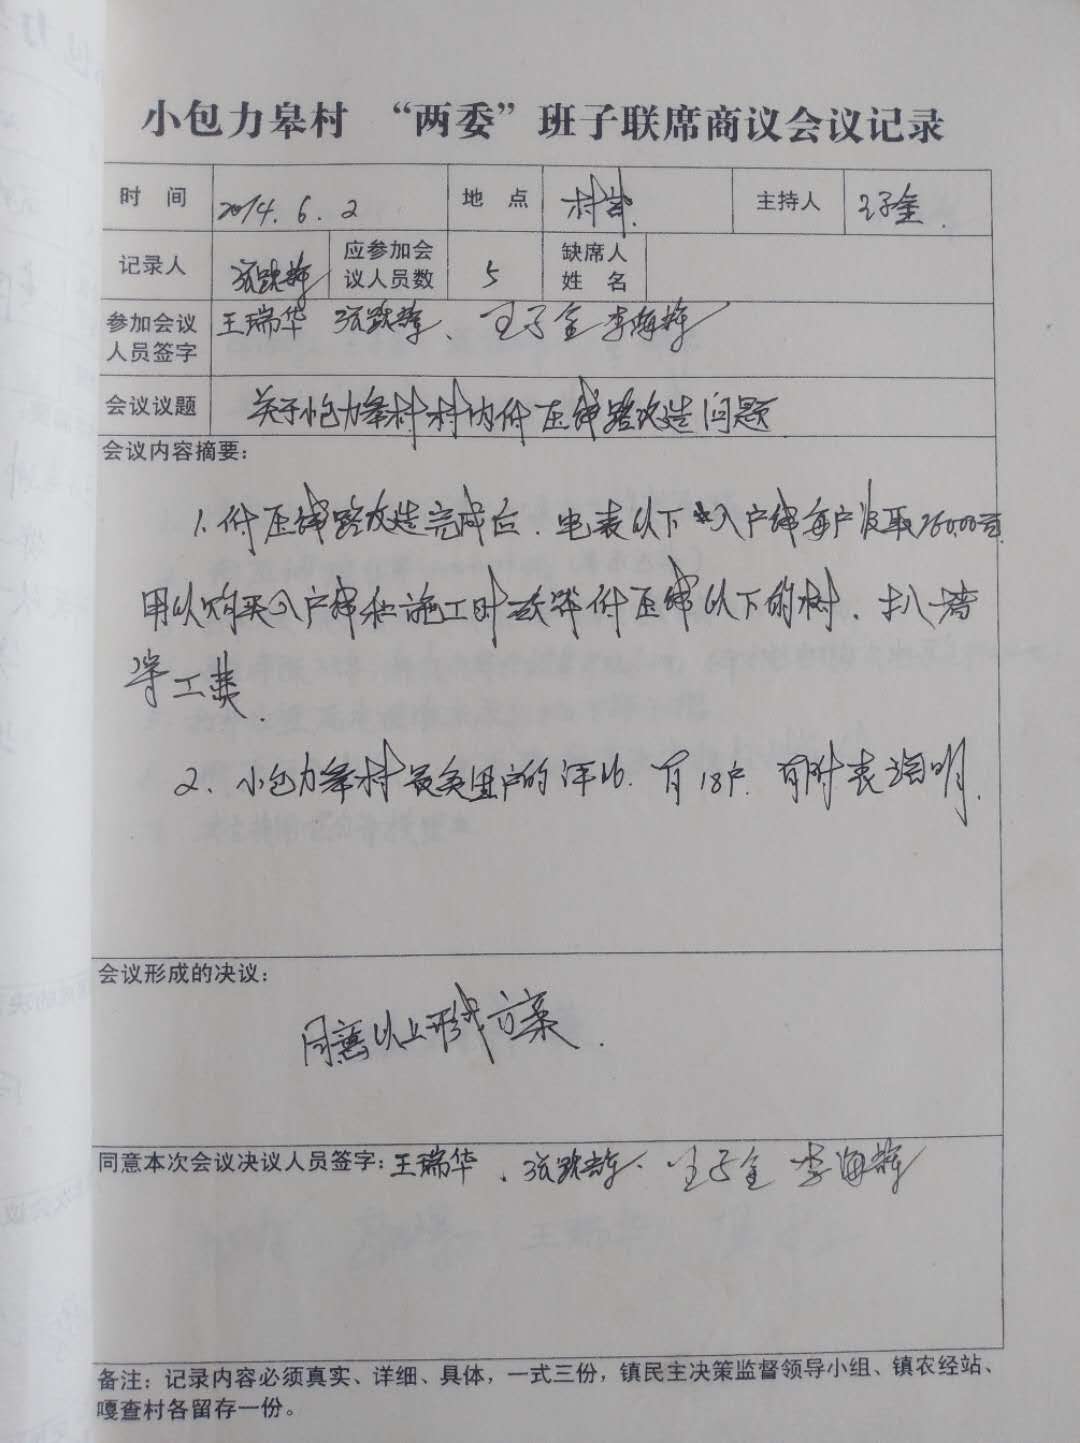 小包力皋村 “两委”班子联席商议会议记录
时 间 2014.6.2 地 点 村部. 主持人 王子金.
记录人 张跃辉 应参加会议人员数 5 缺席人姓 名
参加会议人员签字 王瑞华 张跃辉、王子金 李海辉
会议议题 关于小包力皋村村内付压线路改造问题
会议内容摘要：
1.付压线路改造完成后.电表以下入户线每户收取260.00元.
用以购买入户线和施工时 付压线以下的树.扒墙
等工费.
2、小包力皋村最美 户的评比.有18户.有附表说明.
会议形成的决议：
同意以上形成方案.
同意本次会议决议人员签字：王瑞华、张跃辉、王子金 李海辉
备注：记录内容必须真实、详细、具体，一式三份，镇民主决策监督领导小组、镇农经站、
嘎查村各留存一份。